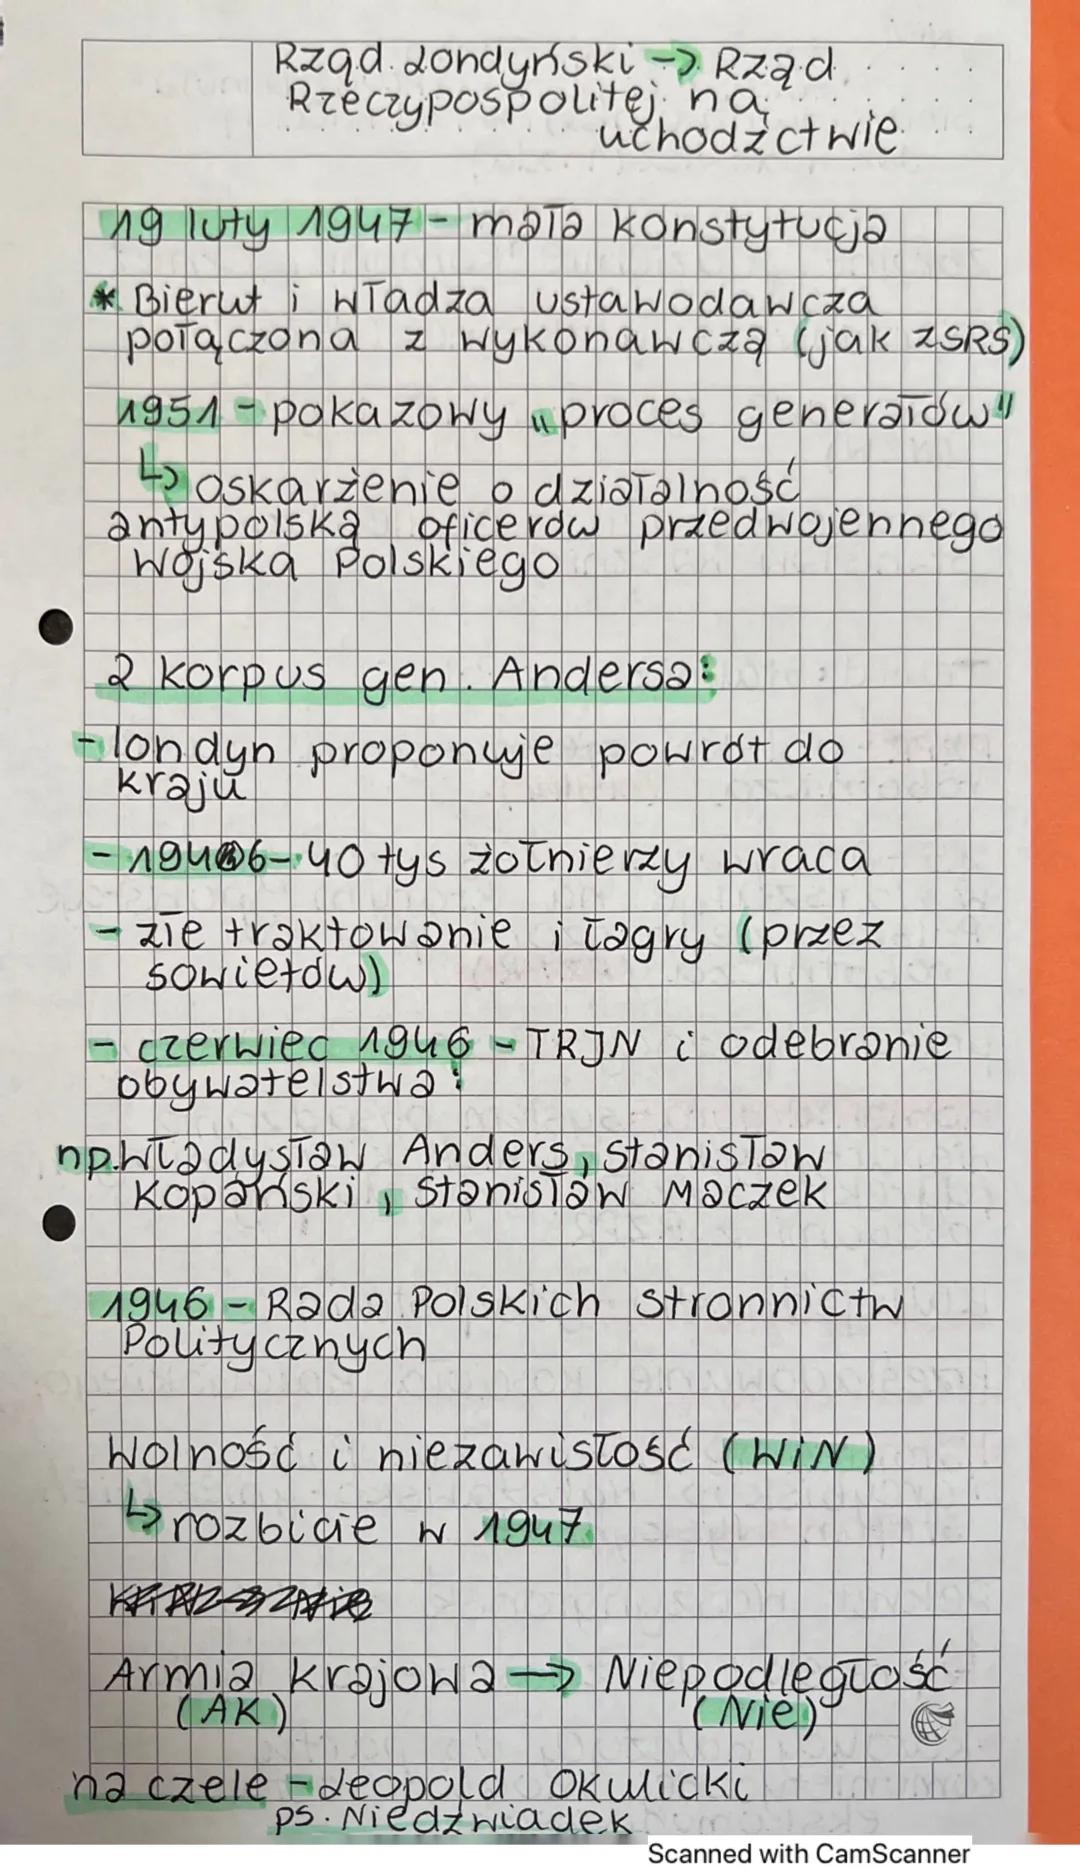 Rząd Londyński → Rząd
Rzeczypospolitej na
uchodźctwie
19 luty 1947 - mała konstytucja
* Bierut i władza ustawodawcza
połączona z wykonawczą (jak ZSRS)
1951 - pokazowy "proces generałów"
↳ oskarżenie o działalność
antypolską oficerów przedwojennego
Wojska Polskiego
2 korpus gen. Andersa:
- londyn proponuje powrót do
kraju
- 1946 - 40 tys żołnierzy wraca
- złe traktowanie i łagry (przez
sowietów)
- czerwiec 1946 - TRJN i odebranie
obywatelstwa:
np. Władysław Anders, Stanisław
Kopański, Stanisław Maczek
1946 - Rada Polskich Stronnictw
Politycznych
Wolność i niezawisłość (WiN)
↳ rozbicie w 1947
Armia krajowa → Niepodległość
(AK) (Nie)
na czele - Leopold Okulicki
ps. Niedźwiadek
Scanned with CamScanner